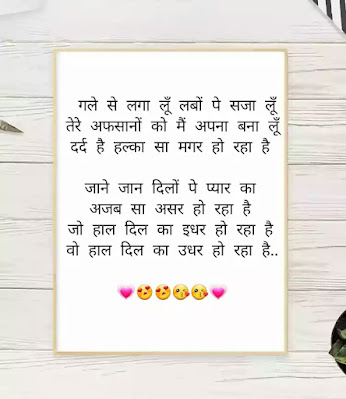 गले से लगा लूँ लबों पे सजा लूँ
तेरे अफसानों को मैं अपना बना लूँ
दर्द है हल्का सा मगर हो रहा है
जाने जान दिलों पे प्यार का
अजब सा असर हो रहा है
जो हाल दिल का इधर हो रहा है
वो हाल दिल का उधर हो रहा है..
💗😍😍😘😘💗